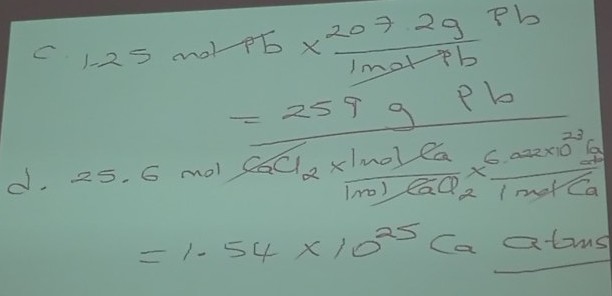 c. 1.25 mol Pb × 207.2g Pb / 1 mol Pb
= 259 g Pb
d. 25.6 mol CaCl₂ × 1 mol Ca / 1 mol CaCl₂ × 6.022×10²³ / 1 mol Ca
= 1.54 × 10²⁵ Ca atoms